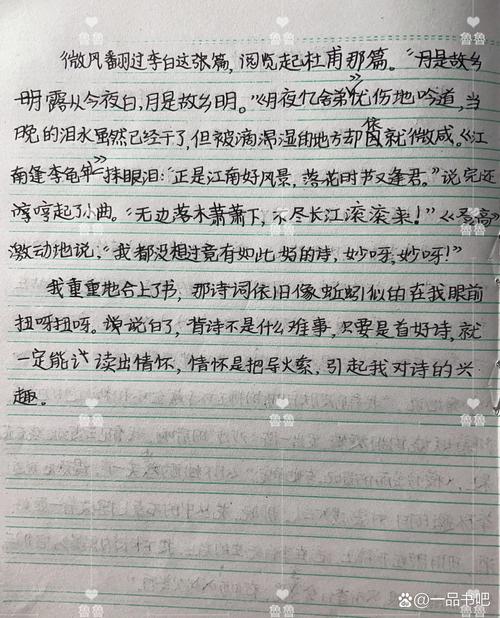 微风翻过李白这张篇，阅览起杜甫那篇。“月是故乡
明露从今夜白，月是故乡明。”《月夜忆舍弟》忧伤地吟道，当
晚的泪水虽然已经干了，但被滴湿的地方却依旧微咸。《江
南逢李龟年》一抹眼泪：“正是江南好风景，落花时节又逢君。”说完还
哼哼起了小曲。“无边落木萧萧下，不尽长江滚滚来！”《登高》
激动地说，“我都没想过竟有如此好的诗，妙呀，妙呀！”
我重重地合上了书，那诗词依旧像蚯蚓似的在我眼前
扭呀扭呀。说白了，背诗不是什么难事，只要是首好诗，就
一定能读出情怀，情怀是把导火索，引起我对诗的兴
趣。
鲁鲁
百 @一品书吧